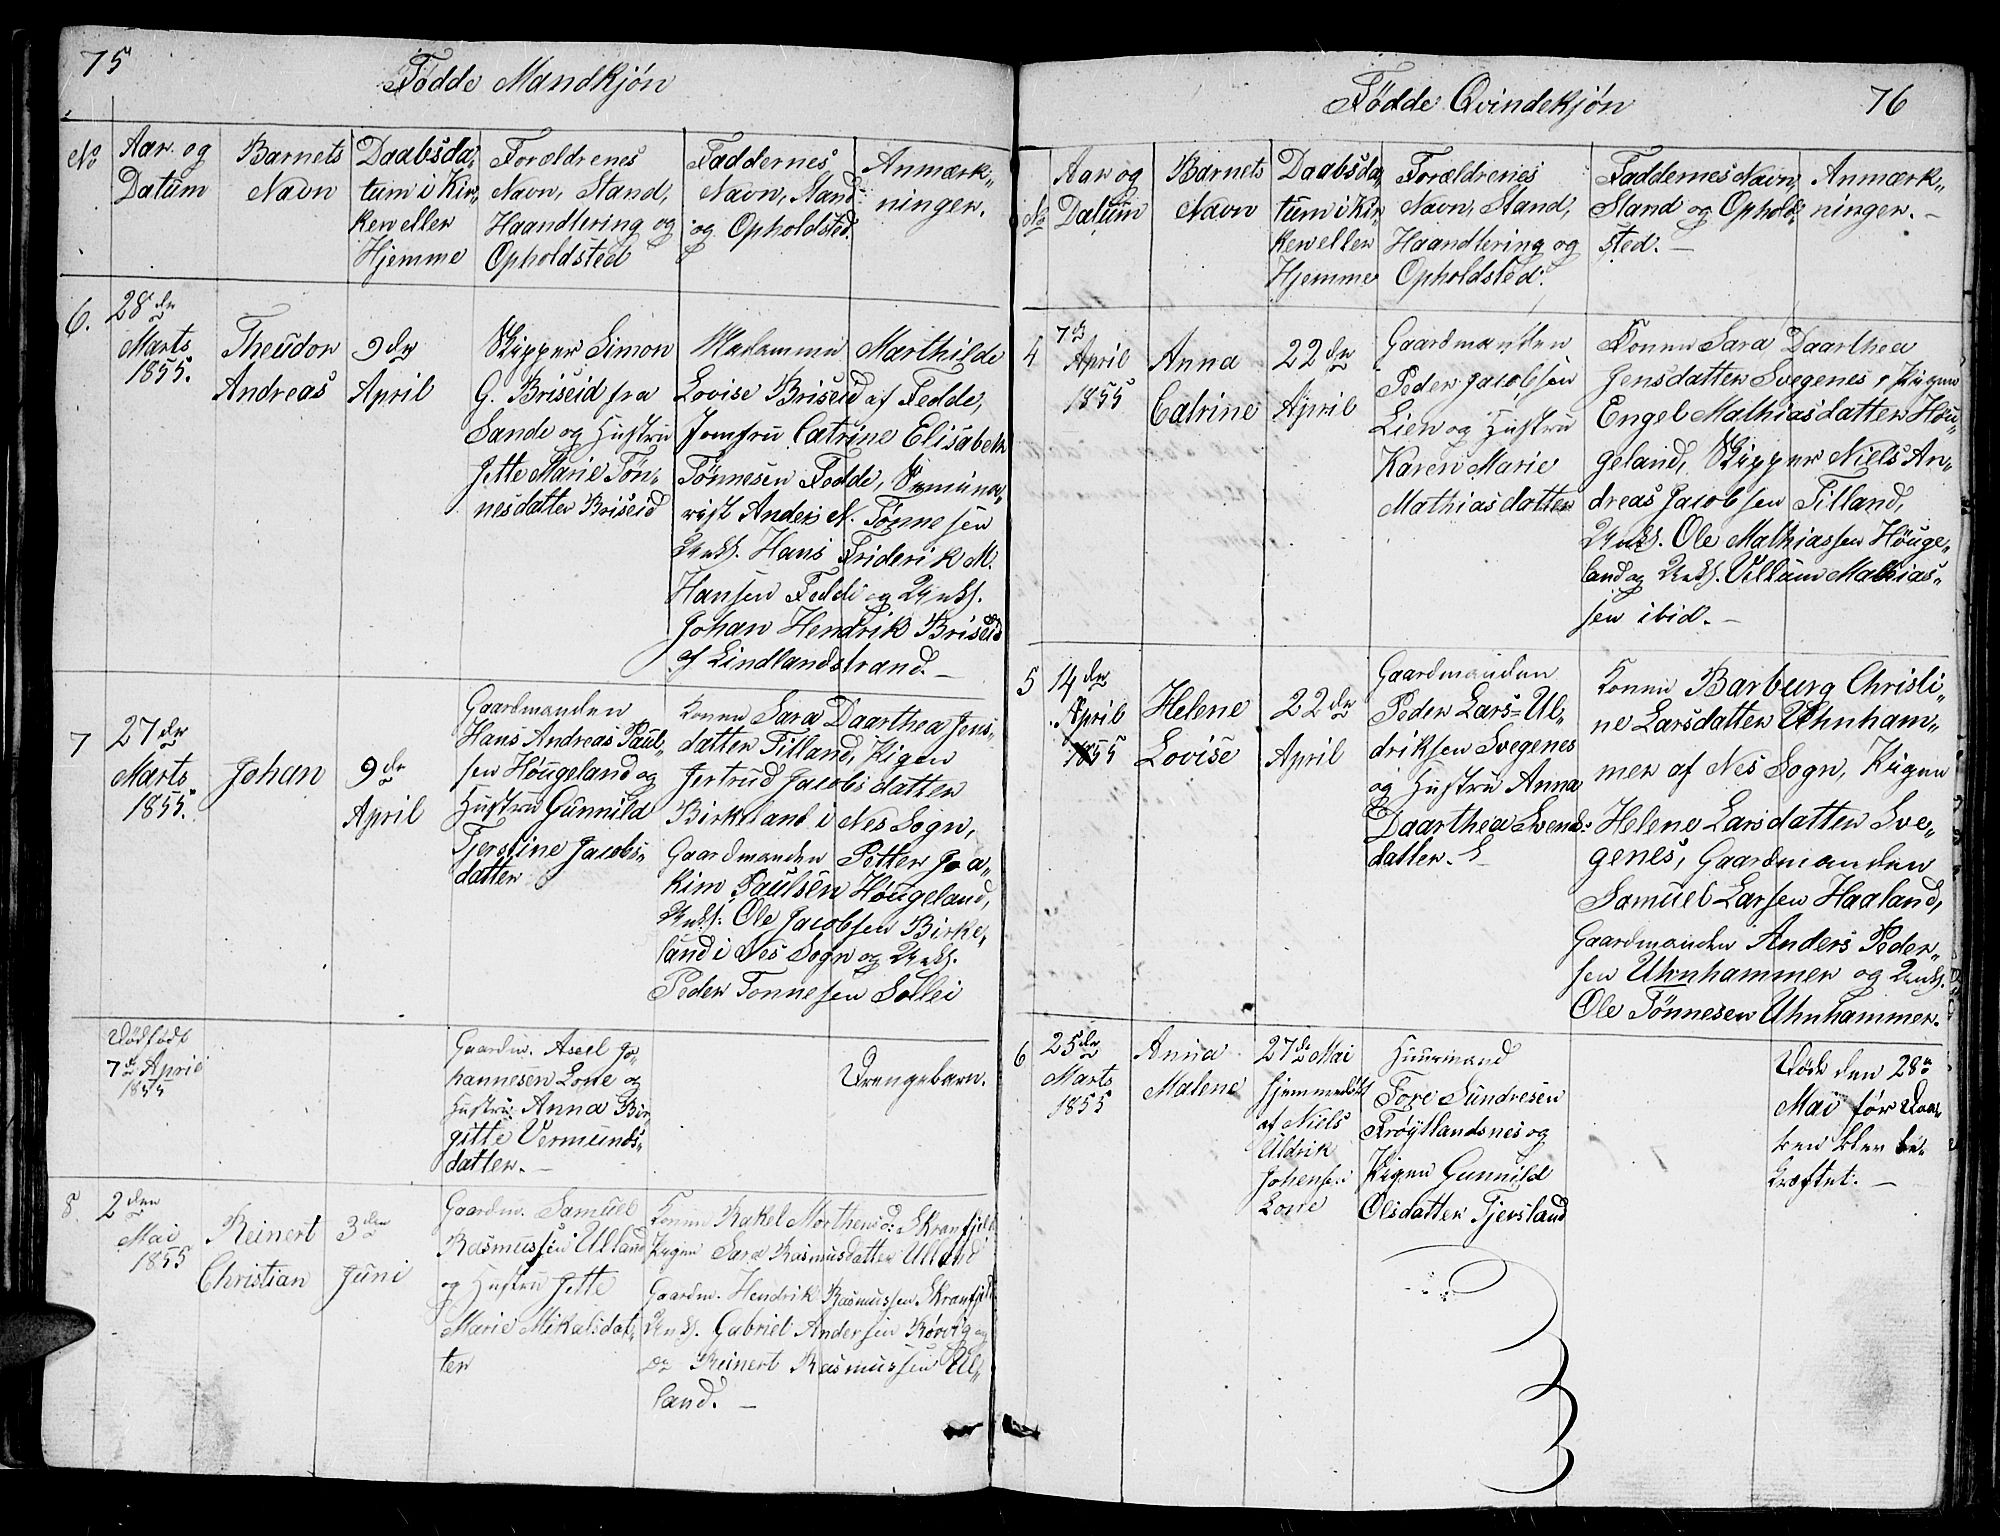 75
Fødde Mandkjøn
No
Aar og
Datum
Barnets
Navn
Daabsda„
tum i Kir„
ken eller
Hjemme
Forældrenes
Navn, Stand,
Haandtering og
Opholdsted
Faddernes
Navn, Stand
og Opholdsted.
Anmærk„
ninger.
6.
28de
Marts
1855.
Theodor
Andreas
9de
April
Skipper Simon
G. Briseid fra
Sande og Hustru
Jette Marie Tøn„
nesdatter Briseid
Madamme Marthilde
Lovise Briseid af Fedde,
Jomfru Catrine Elisabeth
Tønnesen Fedde, Semina„
rist Anders N. Tønnesen
Unks. Hans Friderik M.
Hansen Fedde og Unks.
Johan Hendrik Briseid
af Lindlandstrand. —
7
27de
Marts
1855.
Johan
9de
April
Gaardmanden
Hans Andreas Paul„
sen Høugeland og
Hustru Gunnild
Tjerstine Jacobs„
datter
Konen Sara Daarthea Jens„
datter Tilland, Pigen
Jertrud Jacobsdatter
Birkeland i Nes Sogn,
Gaardmanden Petter Joa„
kim Paulsen Høugeland,
Unks. Ole Jacobsen Birke„
land i Nes Sogn og Unks.
Peder Tonnesen Sollei
Dødfødt
7de April
1855
Gaardm. Axel Jo
hannesen Lone og
Hustru Anna Bir„
gitte Vermunds„
datter. —
Drengebarn.
8.
2den
Mai
1855
Reinert
Christian
3den
Juni
Gaardm. Samuel
Rasmussen Ulland
og Hustru Jette
Marie Mikalsdat„
ter
Konen Rakel Morthensd: Skranfjeld
Pigen Sara Rasmusdatter Ulland
Gaardm. Hendrik Rasmussen Skranfjeld
Unks. Gabriel Andersen Røvvig og
do Reinert Rasmussen Ul„
land. —
76
Fødde Qvindekjøn
No
Aar og
Datum
Barnets
Navn
Daabsda„
tum i Kir„
ken eller
Hjemme
Forældrenes
Navn, Stand,
Haandtering og
Opholdsted.
Faddernes Navn,
Stand og Ophold„
sted. —
Anmærk„
ninger. —
4
7de
April
1855
Anna
Catrine
22de
April
Gaardmanden
Peder Jacobsen
Lien og Hustru
Karen Marie
Mathiasdatter
Konen Sara Daarthea
Jensdatter Svegenes, Pigen
Engel Mathiasdatter Høu„
geland, Skipper Niels An„
dreas Jacobsen Tilland,
Unks. Ole Mathiassen Høuge„
land og Unks. Villum Mathias„
sen ibid. —
5
14de
April
1855
Helene
Lovise
22de
April
Gaardmanden
Peder Lars=Ul„
driksen Svegenes
og Hustru Anna
Daarthea Svends:
datter.
Konen Barburg Christi„
ne Larsdatter Uhnham„
mer af Nes Sogn, Pigen
Helene Larsdatter Sve„
genes, Gaardmanden
Samuel Larsen Haaland,
Gaardmanden Anders Peder„
sen Uhnhammer og Unks.
Ole Tønnesen Uhnhammer.
6
25de
Marts
1855
Anna
Malene
27de Mai
hjemmedøbt
af Niels
Uldrik
Johensen
Lone
Huusmand
Tore Sundresen
Frøytlandsnes og
Pigen Gunnild
Olsdatter Tjersland
Døde den 28de
Mai før Daa„
ben blev be„
kræftet. —